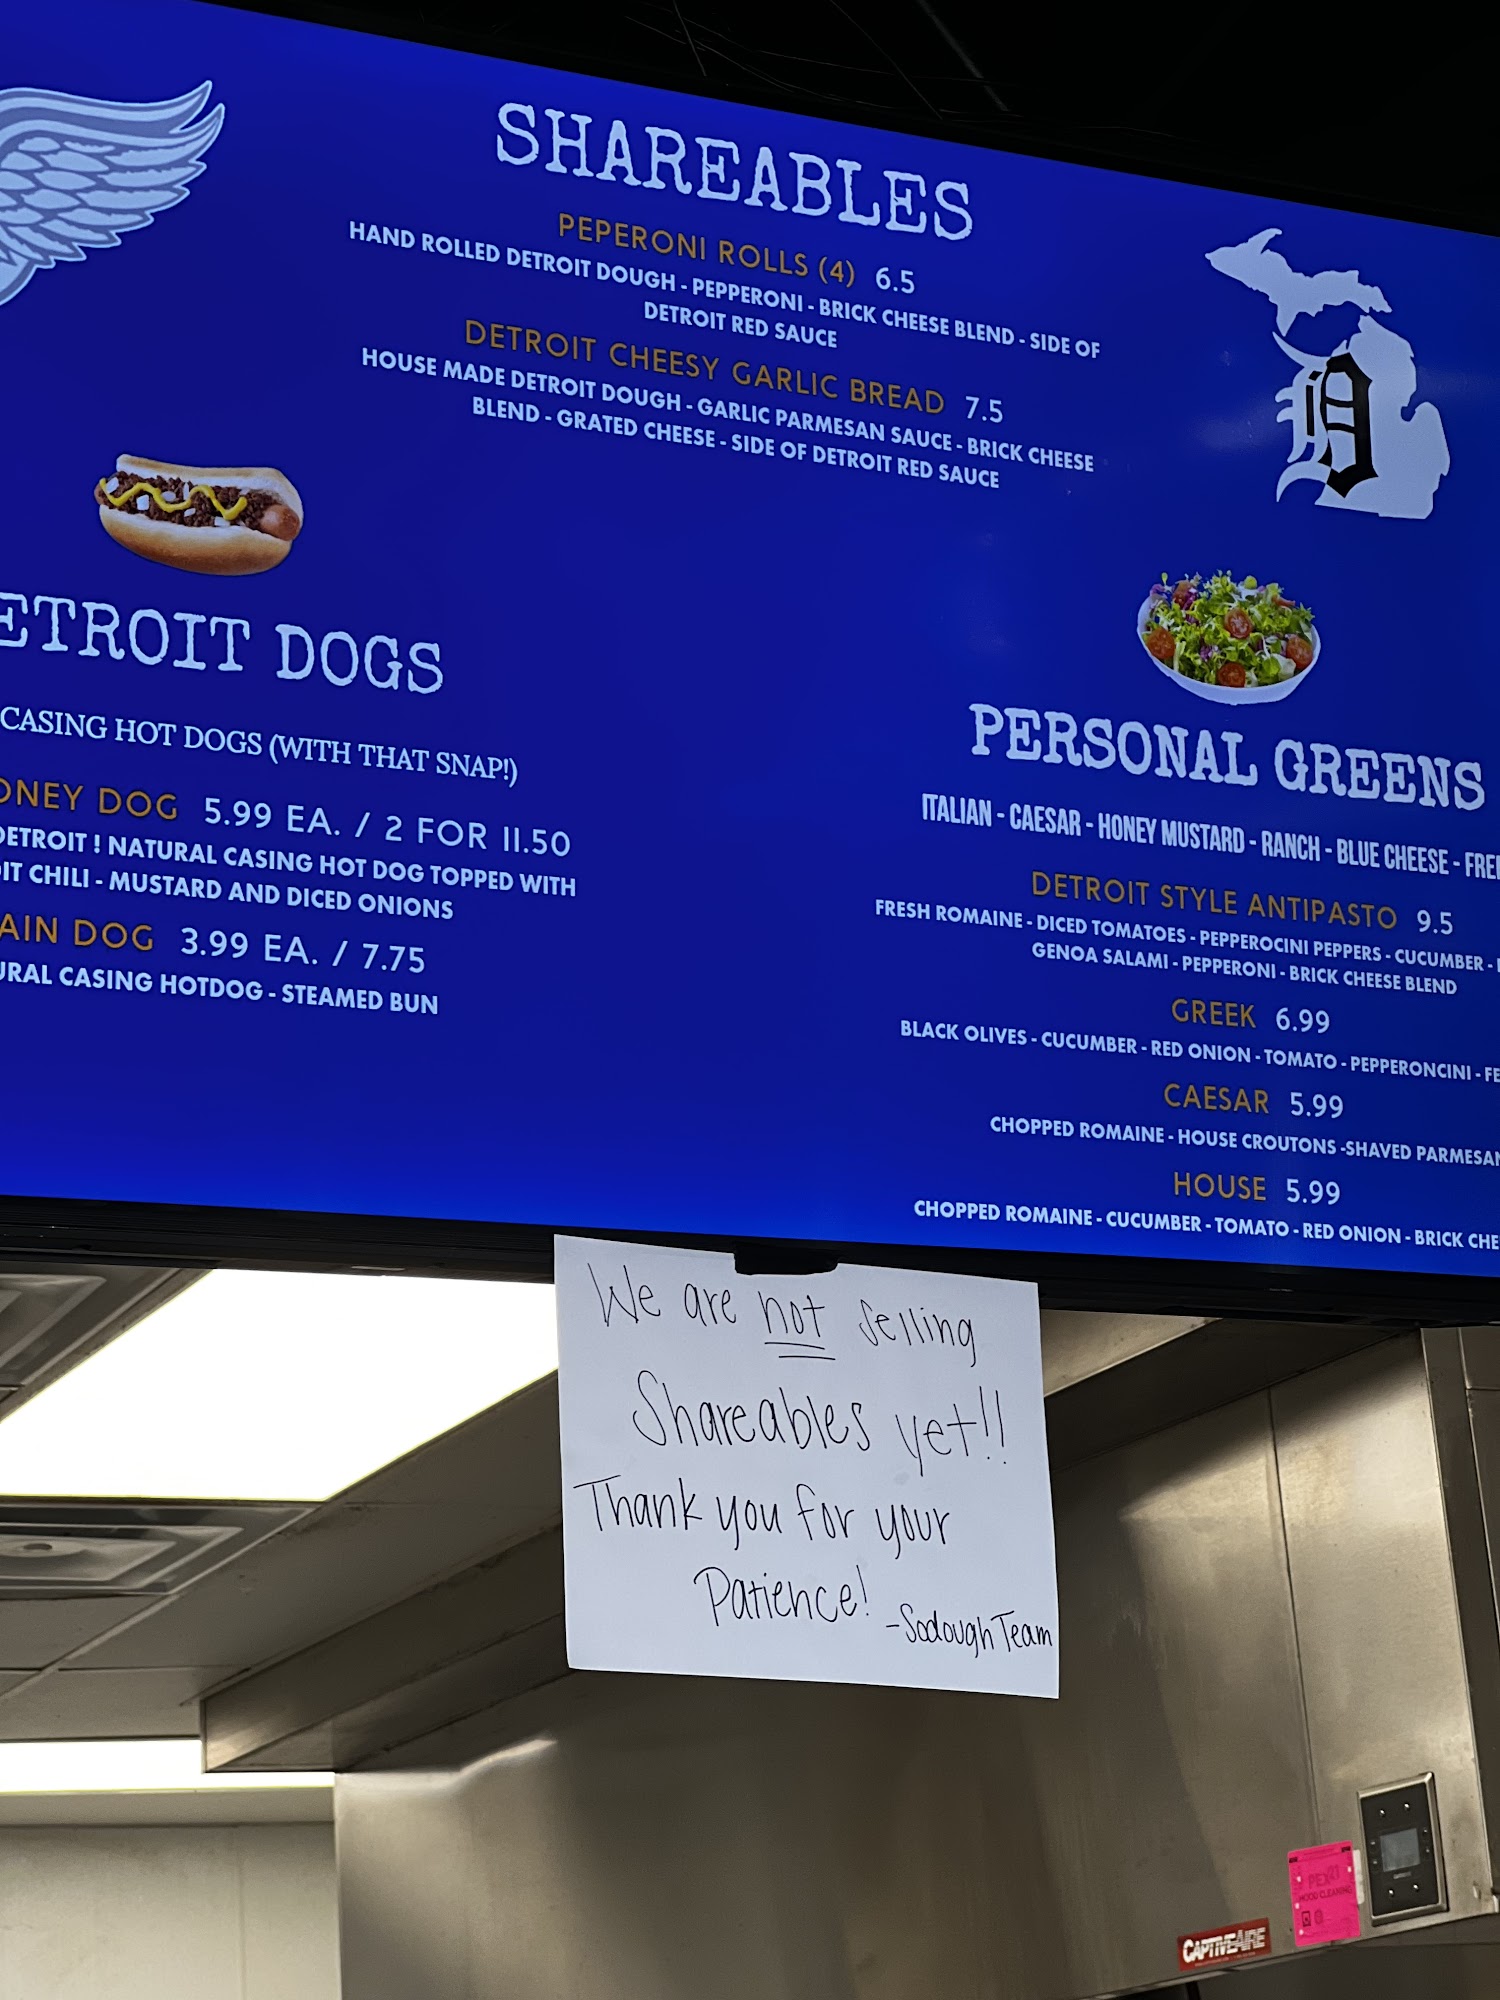 SHAREABLES
PEPERONI ROLLS (4) 6.5
HAND ROLLED DETROIT DOUGH - PEPPERONI - BRICK CHEESE BLEND - SIDE OF
DETROIT RED SAUCE
DETROIT CHEESY GARLIC BREAD 7.5
HOUSE MADE DETROIT DOUGH - GARLIC PARMESAN SAUCE - BRICK CHEESE
BLEND - GRATED CHEESE - SIDE OF DETROIT RED SAUCE
ETROIT DOGS
CASING HOT DOGS (WITH THAT SNAP!)
ONEY DOG 5.99 EA. / 2 FOR 11.50
DETROIT ! NATURAL CASING HOT DOG TOPPED WITH
IT CHILI - MUSTARD AND DICED ONIONS
AIN DOG 3.99 EA. / 7.75
URAL CASING HOTDOG - STEAMED BUN
PERSONAL GREENS
ITALIAN - CAESAR - HONEY MUSTARD - RANCH - BLUE CHEESE - FRE
DETROIT STYLE ANTIPASTO 9.5
FRESH ROMAINE - DICED TOMATOES - PEPPEROCINI PEPPERS - CUCUMBER -
GENOA SALAMI - PEPPERONI - BRICK CHEESE BLEND
GREEK 6.99
BLACK OLIVES - CUCUMBER - RED ONION - TOMATO - PEPPERONCINI - FE
CAESAR 5.99
CHOPPED ROMAINE - HOUSE CROUTONS -SHAVED PARMESAN
HOUSE 5.99
CHOPPED ROMAINE - CUCUMBER - TOMATO - RED ONION - BRICK CHE
We are not selling
Shareables yet!!
Thank you for your
Patience!
-Sodough Team
HOOD CLEANING
CAPTIVEAIRE